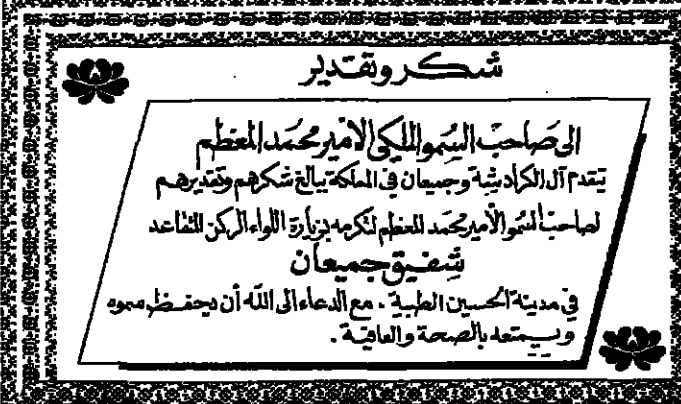 شكر وتقدير
الى صاحب السمو الملكي الامير محمد المعظم
يتقدم آل الكرادشة وجميعان في المملكة ببالغ شكرهم وتقديرهم
لصاحب السمو الأمير محمد المعظم لتكرمه بزيارة اللواء الركن المتقاعد
شفيق جميعان
في مدينة الحسين الطبية . مع الدعاء الى الله أن يحفظ سموه
ويمتعه بالصحة والعافية .